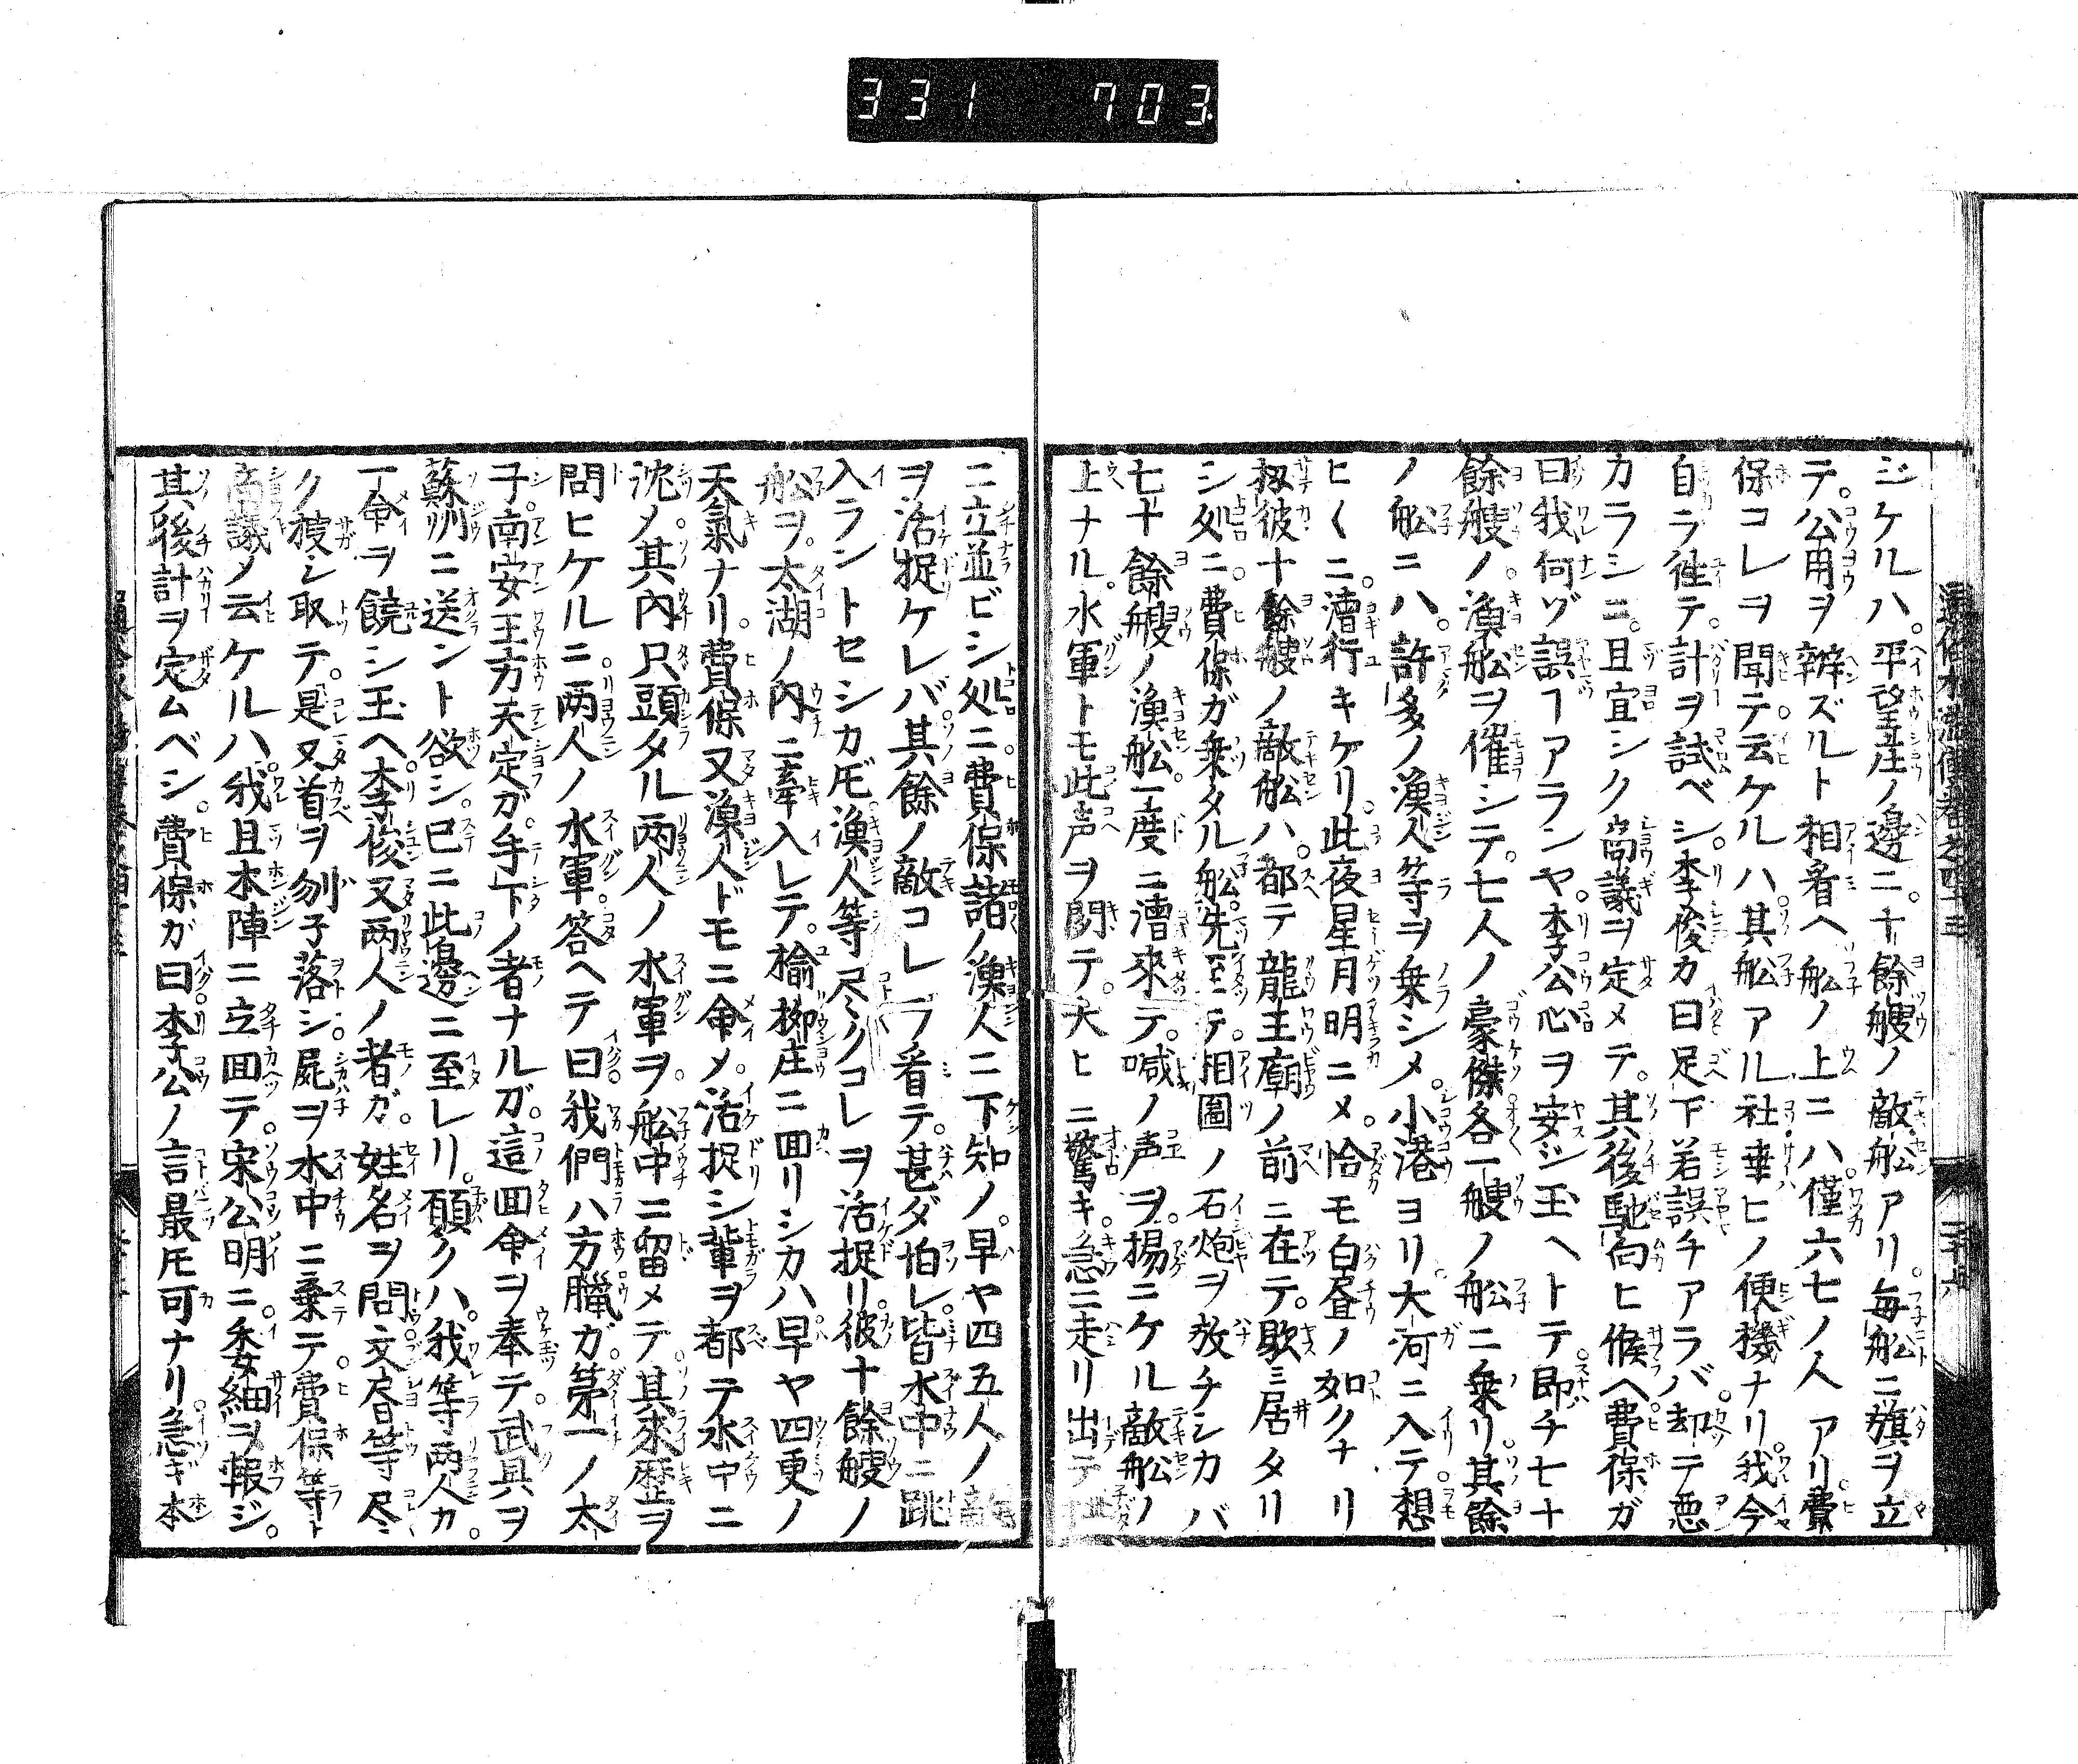 331 703
ジケルハ。平望庄ノ邊ニ。十餘艘ノ敵舩アリ。毎舩ニ旗ヲ立
テ。公用ヲ辨ズルト相看ヘ舩ノ上ニハ。僅六七ノ人アリ。費
保コレヲ聞テ。云ケルハ。其舩アル社。幸ヒノ便機ナリ。我今
自ラ徃テ。計ヲ試ベシ。李俊カ曰足下若誤チアラバ。却テ悪
カラシニ。且宜シク啇議ヲ定メテ。其後馳向ヒ候ヘ。費保ガ
曰我何ゾ誤ヿアランヤ。李公心ヲ安ジ玉ヘトテ。即チ七十
餘艘ノ。漁舩ヲ催シテ。七人ノ豪傑。各一艘ノ舩ニ乗リ。其餘
ノ舩ニハ。許多ノ漁人等ヲ乗シメ。小港ヨリ大河ニ入テ。想
ヒ〱ニ。漕行キケリ。此夜星月明ニメ。恰モ白昼ノ如クナリ
扨彼十餘艘ノ敵舩ハ。都テ龍王廟ノ前ニ在テ。歇ミ居タリ
シ処ニ。費保ガ乗タル舩。先至テ。相圖ノ石炮ヲ放チシカバ
七十餘艘ノ漁舩。一度ニ漕来テ。喊ノ声ヲ。揚ニケル敵舩ノ
上ナル。水軍トモ此声ヲ聞テ。大ヒニ驚キ。急ニ走リ出テ
ニ立並ビシ処ニ。費保諸ノ漁人ニ下知ノ。早ヤ四五人ノ敵
ヲ活捉ケレバ。其餘ノ敵コレヲ看テ。甚ダ怕レ。皆水中ニ跳
入ラントセシカ𪜈。漁人等尽クコレヲ活捉リ。彼十餘艘ノ
舩ヲ。太湖ノ内ニ牽入レテ。榆柳庄ニ回リシカハ。早ヤ四更ノ
天氣ナリ。費保又漁人ドモニ命メ。活捉シ輩ヲ。都テ水中ニ
沈ノ。其内只頭タル両人ノ水軍ヲ。舩中ニ留メテ。其来歴ヲ
問ヒケルニ。両人ノ水軍。答ヘテ曰我們ハ方臘ガ。苐一ノ太
子。南安王方天定ガ。手下ノ者ナルガ。這回命ヲ奉テ。武具ヲ
蘇州ニ送ント欲シ。已ニ此邊ニ至レリ。願クハ。我等両人カ。
一命ヲ饒シ玉ヘ。李俊又両人ノ者ガ。姓名ヲ問。文書等尽
ク䅹シ取テ。是又首ヲ刎子落シ。屍ヲ水中ニ棄テ。費保等ト
啇議メ云ケルハ。我且本陣ニ立回テ。宋公明ニ。委細ヲ報ジ。
其後計ヲ定ムベシ。費保ガ曰李公ノ言最𪜈可ナリ。急ギ本